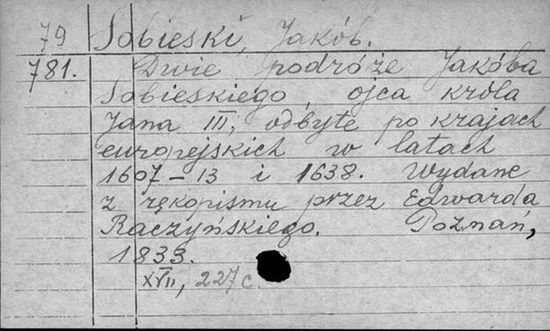 79 Sobieski, Jakób.
781. Dwie podróże Jakóba
Sobieskiego, ojca króla
Jana III, odbyte po krajach
europejskich w latach
1607-13 i 1638. Wydane
z rękopismu przez Edwarda
Raczyńskiego. Poznań,
1833.
XVII, 227 c.